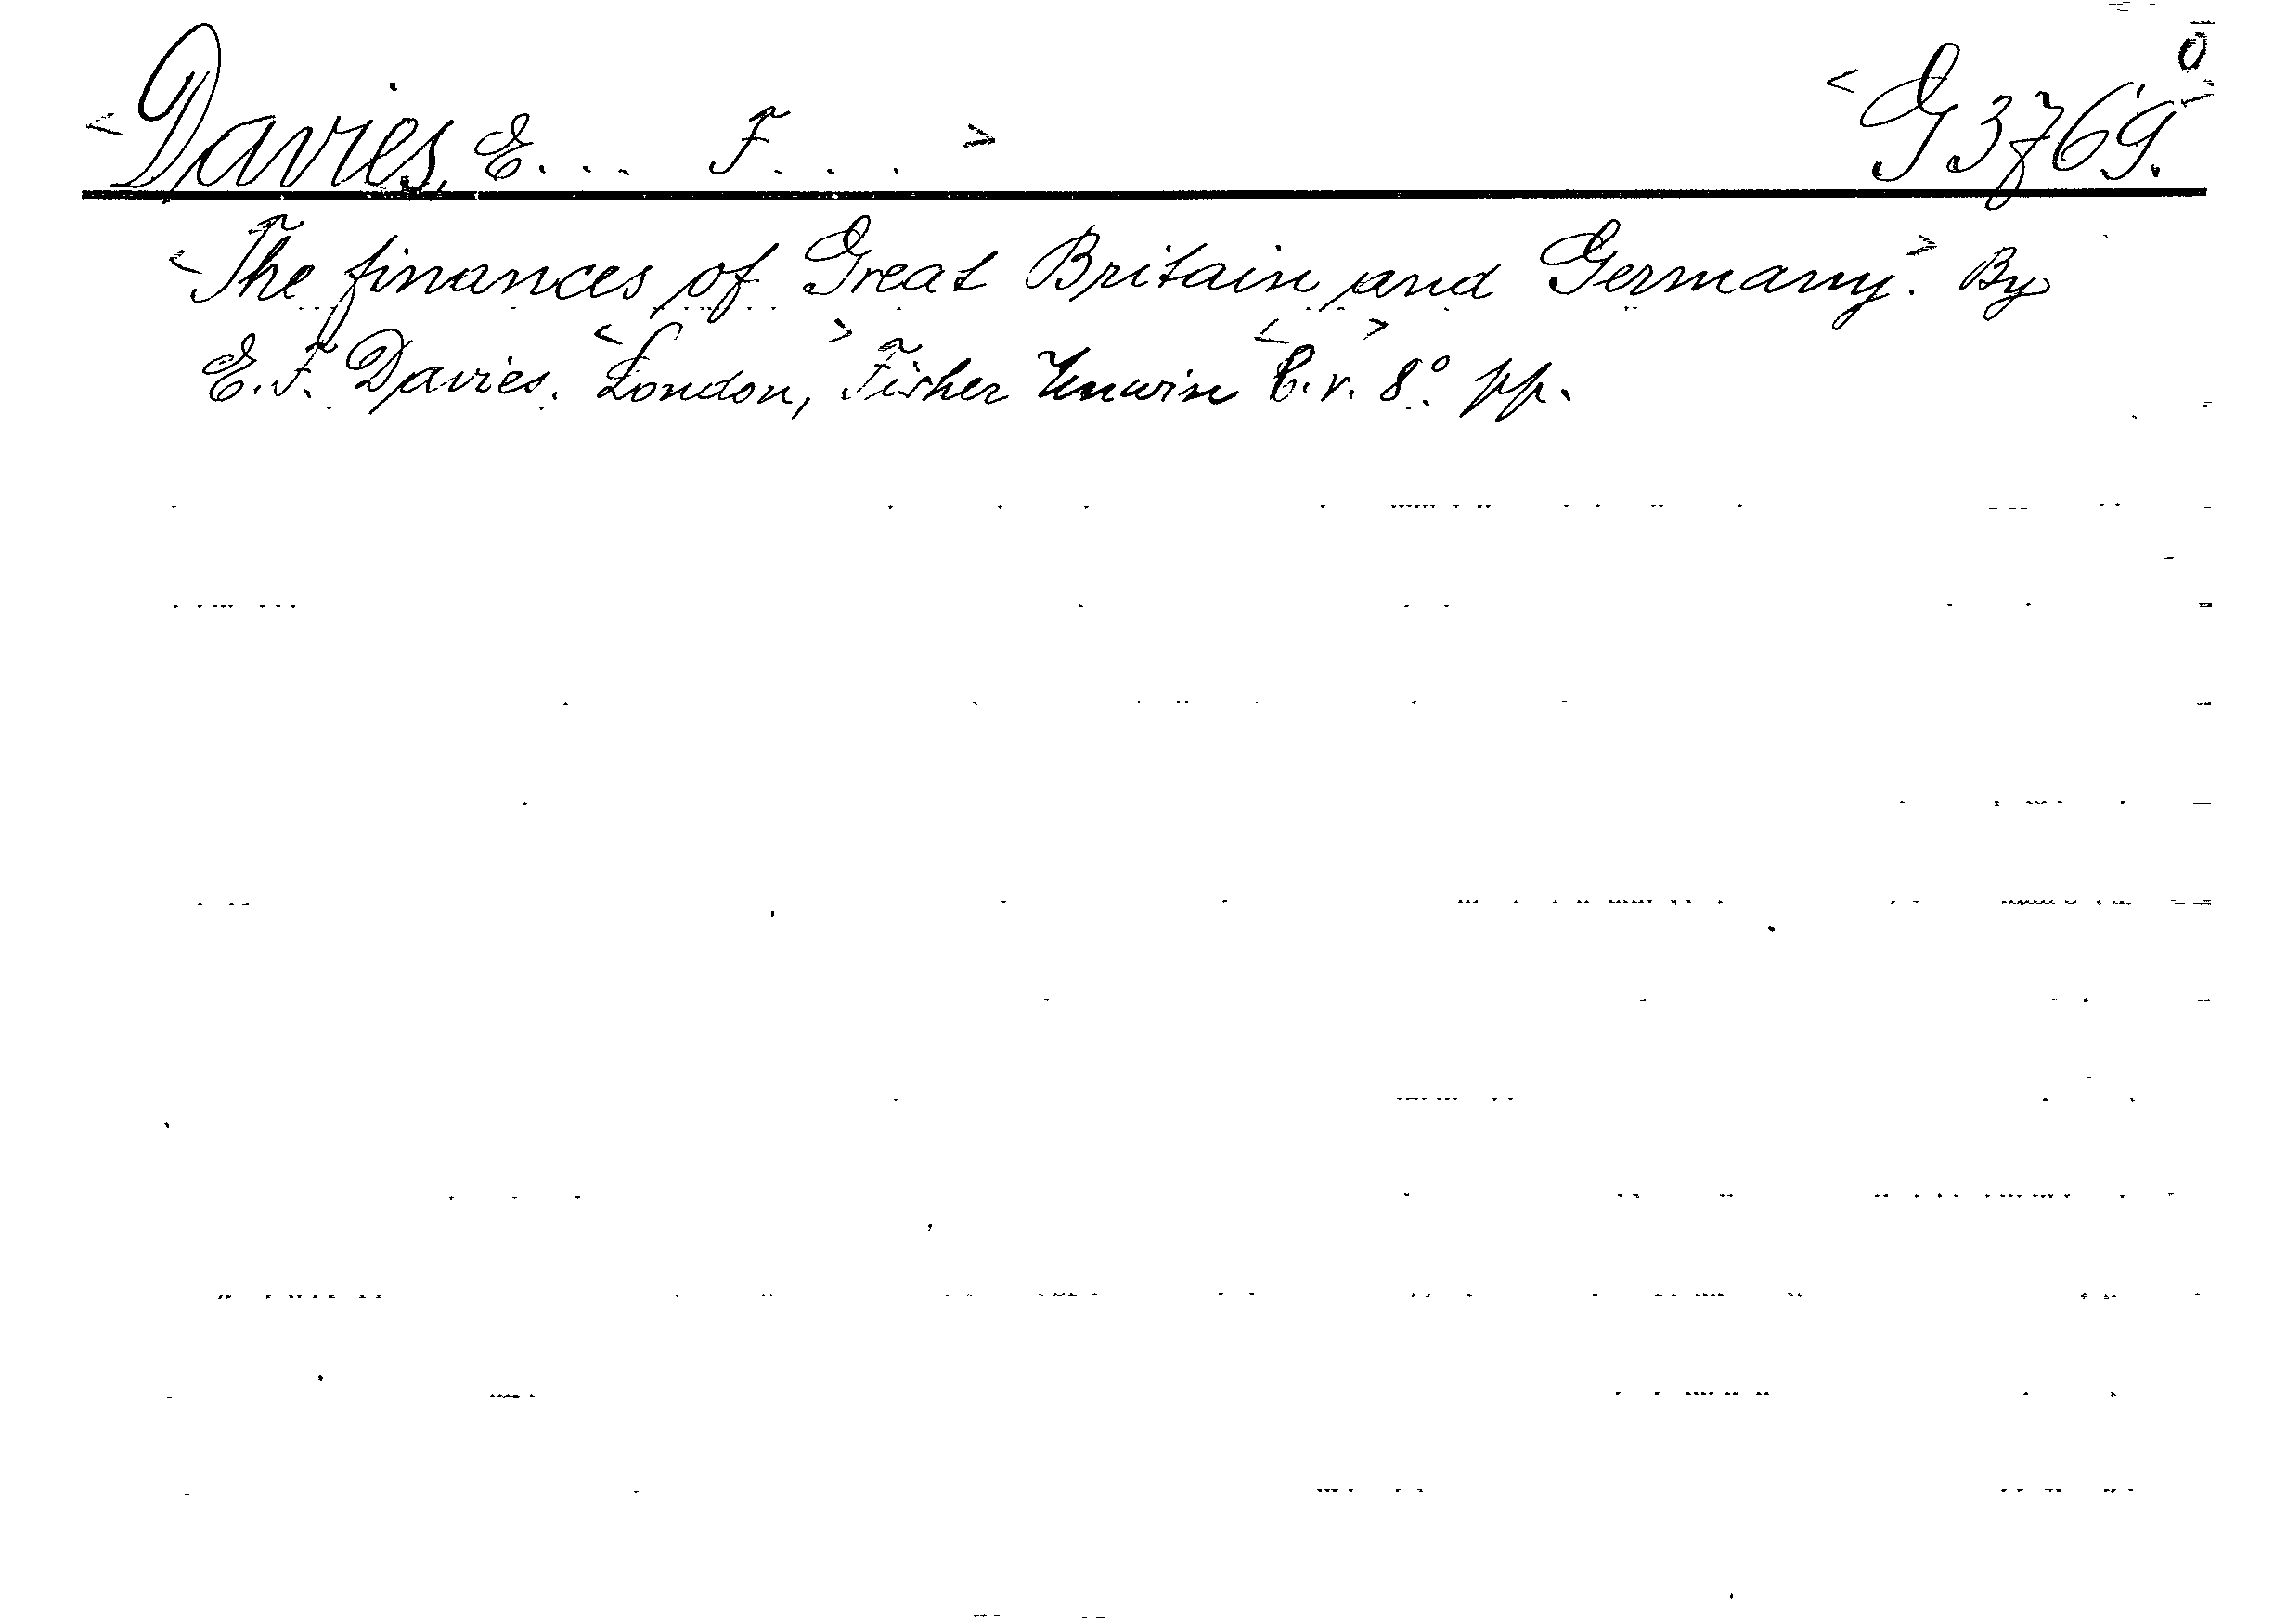 <Davies, E... F...> <G 3769.>
<The finances of Great Britain and Germany.> By
E. F. Davies. <London,> Fisher Unwin <b.r.> 8° pp.